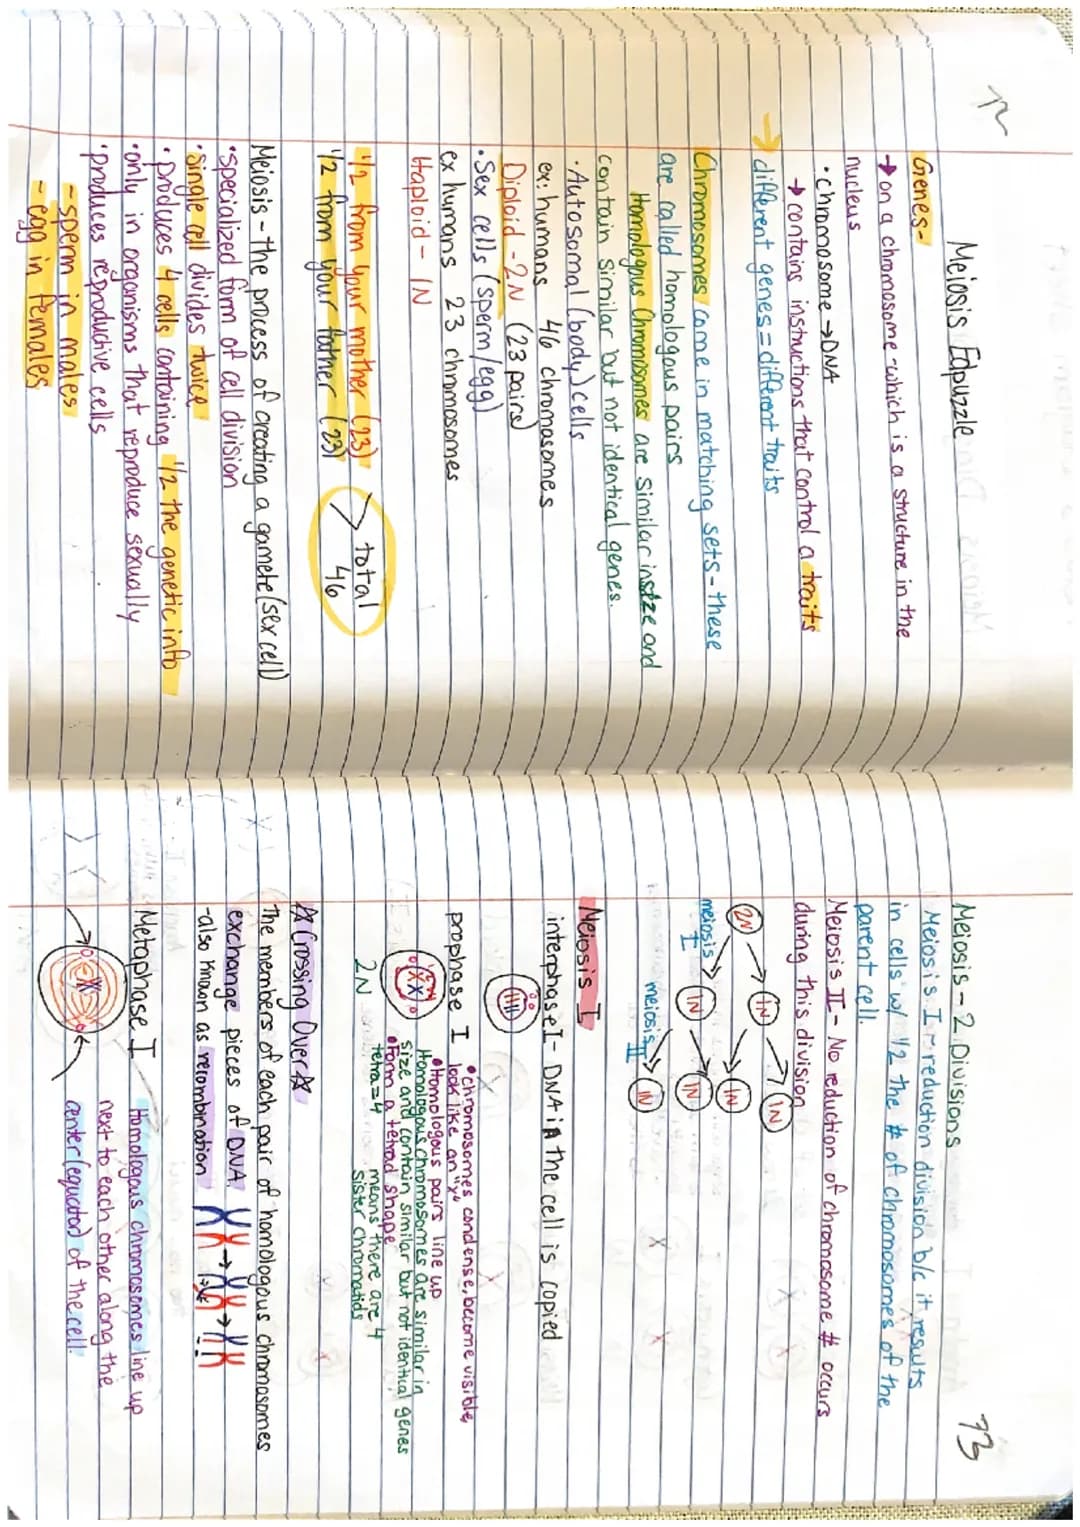 72
Meiosis Edpuzzle
Genes-
→ on a chromosome - which is a structure in the
nucleus
• chromosome → DNA
→ contains instructions that control a traits
→ different genes = different traits
Chromosomes come in matching sets - these
are called homologous pairs
Homologous Chromosomes are similar in size and
contain similar but not identical genes.
• Autosomal (body) cells
ex: humans 46 chromosomes
Diploid - 2N (23 pairs)
• Sex cells (sperm/egg)
ex humans 23 chromosomes
Haploid - 1N
1/2 from your mother (23)
1/2 from your father (23)
> total
46
Meiosis - the process of creating a gamete (sex cell)
• specialized form of cell division
• single cell divides twice
• produces 4 cells containing 1/2 the genetic info
• only in organisms that reproduce sexually
• produces reproductive cells
- sperm in males
- egg in females
73
Meiosis - 2 Divisions
Meiosis I - reduction division b/c it results
in cells w/ 1/2 the # of chromosomes of the
parent cell.
Meiosis II - No reduction of chromosome # occurs
during this division
2N
1N
1N
1N
1N
1N
1N
meiosis I
meiosis II
Meiosis I
interphase I - DNA in the cell is copied
prophase I
• chromosomes condense, become visible,
look like an "x"
• Homologous pairs line up
Homologous chromosomes are similar in
size and contain similar but not identical genes
• Form a tetrad shape
tetra = 4 means there are 4
sister chromatids
2N
☆ Crossing Over ☆
The members of each pair of homologous chromosomes
exchange pieces of DNA
- also known as recombination
Metaphase I
Homologous chromosomes line up
next to each other along the
center (equator) of the cell.